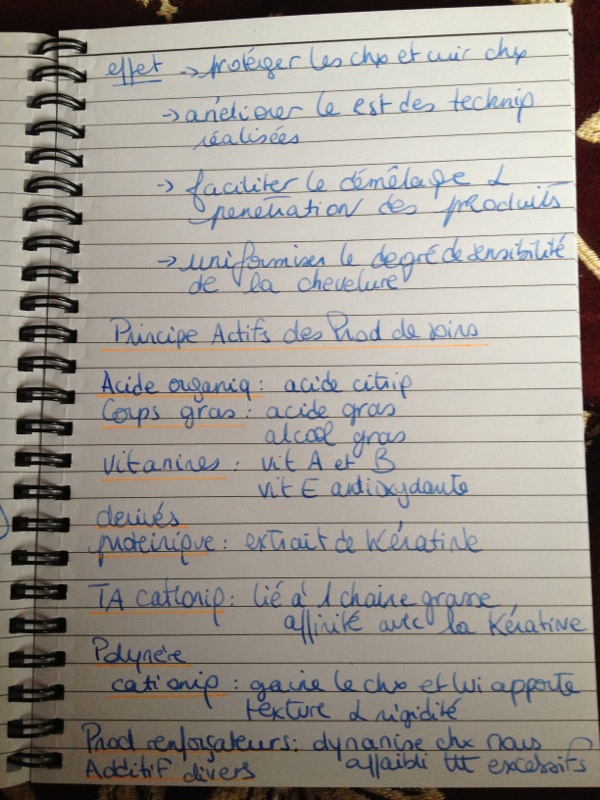 effet → protéger les chx et cuir chx
→ améliorer le est des techniq
réalisées
→ faciliter le démêlage &
penétration des produits
→ uniformiser le degré de sensibilité
de la chevelure
Principe Actifs des Prod de soins
Acide organiq : acide citriq
Corps gras : acide gras
alcool gras
vitamines : vit A et B
vit E antioxydante
derivés
proteinique : extrait de Kératine
TA cationiq : lié à 1 chaine grasse
affinité avec la Kératine
Polymère
cationiq : gaine le chx et lui apporte
texture & rigidité
Prod renforçateurs : dynamise chx
Additif divers affaibli ttt excessifs